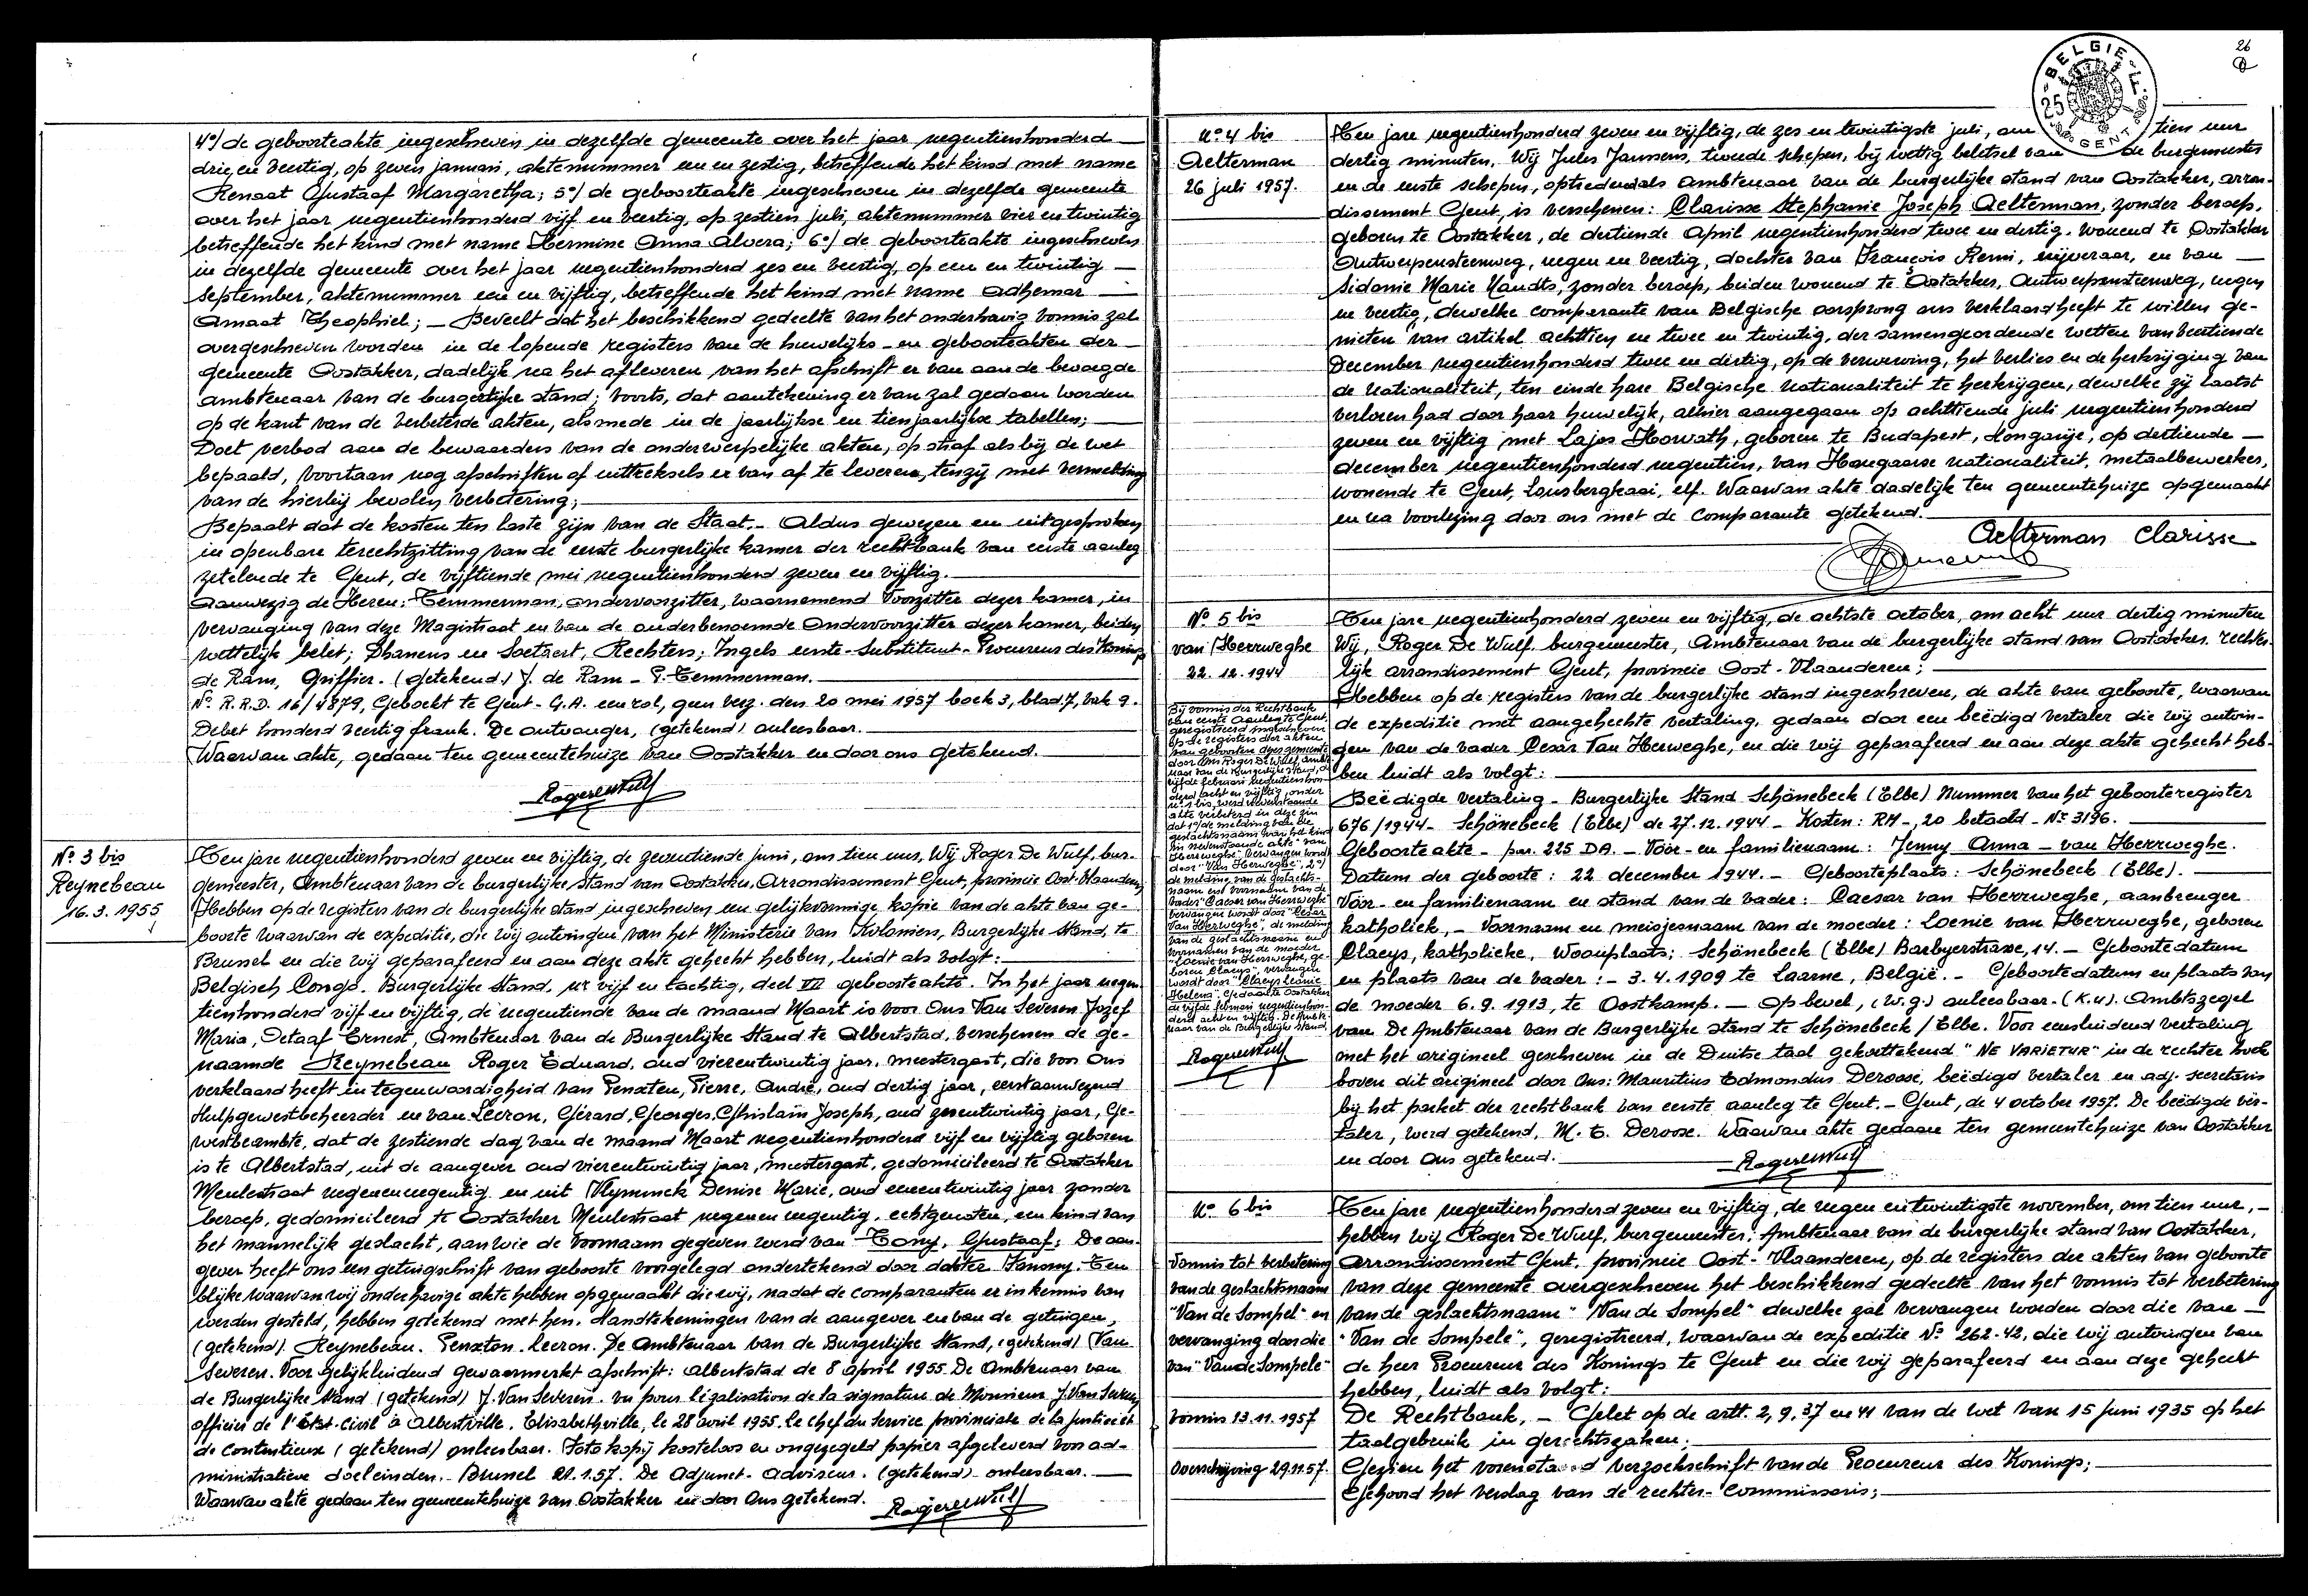 4°/ de geboorteakte ingeschreven in dezelfde gemeente over het jaar negentienhonderd
drie en veertig, op zeven januari, aktenummer een en zestig, betreffende het kind met name
Renaat Gustaaf Margaretha; 5°/ de geboorteakte ingeschreven in dezelfde gemeente
over het jaar negentienhonderd vijf en veertig, op zestien juli, aktenummer vier en twintig
betreffende het kind met name Hermine Anna Alvera; 6°/ de geboorteakte ingeschreven
in dezelfde gemeente over het jaar negentienhonderd zes en veertig, op een en twintig
september, aktenummer een en vijftig, betreffende het kind met name Adhemar
Amaat Theophiel; – Beveelt dat het beschikkend gedeelte van het onderhavig vonnis zal
overgeschreven worden in de lopende registers van de huwelijks- en geboorteakten der
gemeente Oostakker, dadelijk na het afleveren van het afschrift er van aan de bevoegde
ambtenaar van de burgerlijke stand; voorts, dat aantekening er van zal gedaan worden
op de kant van de verbeterde akten, alsmede in de jaarlijkse en tienjaarlijkse tabellen;
Doet verbod aan de bewaarders van de onderwerpelijke akten, op straf als bij de wet
bepaald, voortaan nog afschriften of uittreksels er van af te leveren, tenzij met vermelding
van de hierbij bevolen verbetering;
Bepaalt dat de kosten ten laste zijn van de Staat.- Aldus gewezen en uitgesproken
in openbare terechtzitting van de eerste burgerlijke kamer der rechtbank van eerste aanleg
zetelende te Gent, de vijftiende mei negentienhonderd zeven en vijftig.
Aanwezig de Heren: Temmerman, ondervoorzitter, waarnemend Voorzitter dezer kamer, in
vervanging van deze Magistraat en van de anderbenoemde Ondervoorzitter dezer kamer, beiden
wettelijk belet; Dhanens en Soetaert, Rechters; Ingels eerste-Substituut-Procureur des Konings
de Ram, Griffier. (getekend) J. de Ram – P. Temmerman.
N° R.R.D. 16/4879, Geboekt te Gent - G.A. een rol, geen verz. den 20 mei 1957 boek 3, blad 7, vak 9.
Debet honderd veertig frank. De ontvanger, (getekend) onleesbaar.
Waarvan akte, gedaan ten gemeentehuize van Oostakker en door ons getekend.
Roger De Wulf
N° 3 bis
Reynebeau
16.3.1955
Ten jare negentienhonderd zeven en vijftig, de zeventiende juni, om tien uur, Wij Roger De Wulf, bur-
gemeester, Ambtenaar van de burgerlijke stand van Oostakker, Arrondissement Gent, provincie Oost-Vlaanderen,
Hebben op de registers van de burgerlijke stand ingeschreven een gelijkvormige kopie van de akte van ge-
boorte waarvan de expeditie, die wij ontvingen van het Ministerie van Koloniën, Burgerlijke Stand, te
Brussel en die wij geparafeerd en aan deze akte gehecht hebben, luidt als volgt:
Belgisch Congo. Burgerlijke Stand, nr vijf en tachtig, deel VII geboorteakte. In het jaar negen
tienhonderd vijf en vijftig, de negentiende van de maand Maart is voor Ons Van Severen Jozef
Maria, Octaaf Ernest, Ambtenaar van de Burgerlijke Stand te Albertstad, verschenen de ge-
naamde Reynebeau Roger Eduard, oud vierentwintig jaar, meestergast, die voor Ons
verklaard heeft in tegenwoordigheid van Penxten, Pierre, André, oud dertig jaar, eerstaanwezend
Hulpgewestbeheerder en van Leeron, Gérard, Georges, Ghislain Joseph, oud zesentwintig jaar, Ge-
westbeambte, dat de zestiende dag van de maand Maart negentienhonderd vijf en vijftig geboren
is te Albertstad, uit de aangever oud vierentwintig jaar, meestergast, gedomicileerd te Oostakker
Meulestraat negenennegentig en uit Vlyminck Denise Marie, oud eenentwintig jaar zonder
beroep, gedomicileerd te Oostakker Meulestraat negenennegentig, echtgenoten, een kind van
het mannelijk geslacht, aan wie de voornaam gegeven werd van Tony, Gustaaf; De aan-
gever heeft ons een getuigschrift van geboorte voorgelegd ondertekend door dokter Ten
blijke waarvan wij onderhavige akte hebben opgemaakt die wij, nadat de comparanten er in kennis van
werden gesteld, hebben getekend met hen. Handtekeningen van de aangever en van de getuigen,
(getekend). Reynebeau. Penxten. Leeron. De Ambtenaar van de Burgerlijke Stand, (getekend) (Van
Severen. Voor gelijkluidend gewaarmerkt afschrift: Albertstad de 8 April 1955. De Ambtenaar van
de Burgerlijke Stand (getekend) J. Van Severen. Vu pour légalisation de la signature de Monsieur J. Van Severen
officier de l'état-civil à Albertville. Elisabethville, le 28 avril 1955. Le chef du Service provinciale de la Justice et
du Contentieux (getekend) onleesbaar. Fotokopij kosteloos en ongezegeld papier afgeleverd voor ad-
ministratieve doeleinden.- Brussel 21.1.57. De Adjunct-Adviseur. (getekend) onleesbaar.
Waarvan akte gedaan ten gemeentehuize van Oostakker en door Ons getekend. Roger De Wulf
26
BELGIE
25
GENT
N° 4 bis
Aelterman
26 juli 1957.
Ten jare negentienhonderd zeven en vijftig, de zes en twintigste juli, om tien uur
dertig minuten. Wij Jules Janssens, tweede schepen, bij wettig beletsel van de burgemeester
en de eerste schepen, optredend als Ambtenaar van de burgerlijke stand van Oostakker, arron-
dissement Gent, is verschenen: Clarisse Stephanie Joseph Aelterman, zonder beroep,
geboren te Oostakker, de dertiende April negentienhonderd twee en dertig, wonend te Oostakker
Antwerpensteenweg, negen en veertig, dochter van François Remi, nijveraar, en van
Sidonie Marie Naudts, zonder beroep, beiden wonend te Oostakker, Antwerpensteenweg, negen
en veertig, dewelke comparante van Belgische oorsprong ons verklaard heeft te willen ge-
nieten van artikel achttien en twee en twintig, der samengeordende wetten van veertiende
December negentienhonderd twee en dertig, op de verwerving, het verlies en de herkrijging van
de nationaliteit, ten einde hare Belgische nationaliteit te herkrijgen, dewelke zij laatst
verloren had door haar huwelijk, alhier aangegaan op achttiende juli negentienhonderd
zeven en vijftig met Lajos Horwath, geboren te Budapest, Hongarije, op dertiende
december negentienhonderd negentien, van Hongaarse nationaliteit, metaalbewerker,
wonende te Gent, Lousbergkaai, elf. Waarvan akte dadelijk ten gemeentehuize opgemaakt
en na voorlezing door ons met de comparante getekend.
Aelterman Clarisse
N° 5 bis
van Herrweghe
22.12.1944
Bij vonnis der Rechtbank
van eerste Aanleg te Gent,
geregistreerd ingeschreven
op de registers der akten
van geboorten dezer gemeente
door Ons Roger De Wulf, ambte-
naar van de Burgerlijke Stand, de
vijfde februari negentienhon-
derd acht en vijftig, onder
n° 1 bis, werd nevenstaande
akte verbeterd in deze zin
dat 1°/ de melding van de
geslachtsnaam van het kind
in nevenstaande akte "van
Herrweghe" vervangen wordt
door "Van Herweghe", 2°/
de melding van de geslachts-
naam en voornaam van de
vader "Caesar van Herrweghe"
vervangen wordt door "Cesar
Van Herweghe", de melding
van de geslachtsnaam en
voornamen van de moeder
"Loenie van Herrweghe, ge-
boren Claeys", vervangen
wordt door "Claeys Leonie
Helena". Gedaan te Oostakker
de vijfde februari negentienhon-
derd acht en vijftig. De Ambte-
naar van de Burgerlijke Stand,
Roger De Wulf
Ten jare negentienhonderd zeven en vijftig, de achtste october, om acht uur dertig minuten
Wij, Roger De Wulf, burgemeester, Ambtenaar van de burgerlijke stand van Oostakker, rechter-
lijk arrondissement Gent, provincie Oost-Vlaanderen;
Hebben op de registers van de burgerlijke stand ingeschreven, de akte van geboorte, waarvan
de expeditie met aangehechte vertaling, gedaan door een beëdigd vertaler die wij ontvin-
gen van de vader Cesar Van Herweghe, en die wij geparafeerd en aan deze akte gehecht heb-
ben luidt als volgt:
Beëdigde vertaling - Burgerlijke Stand Schönebeck (Elbe) Nummer van het geboorteregister
676/1944 - Schönebeck (Elbe) de 27.12.1944 - Kosten: RM -,20 betaald - N° 3196.
Geboorteakte - par. 225 DA. - Voor- en familienaam: Jenny Anna – van Herrweghe.
Datum der geboorte: 22 december 1944. - Geboorteplaats: Schönebeck (Elbe).
Voor- en familienaam en stand van de vader: Caesar van Herrweghe, aanbrenger
katholiek, - Voornaam en meisjesnaam van de moeder: Loenie van Herrweghe, geboren
Claeys, katholieke, Woonplaats: Schönebeck (Elbe) Barbyerstrasse, 14. - Geboortedatum
en plaats van de vader: - 3.4.1909 te Laarne, België. - Geboortedatum en plaats van
de moeder 6.9.1913, te Oostkamp. - Op bevel, (w.g.) onleesbaar. (K.U). Ambtszegel
van De Ambtenaar van de Burgerlijke stand te Schönebeck / Elbe. Voor eensluidend vertaling
met het origineel geschreven in de Duitse taal gekenttekend "NE VARIETUR" in de rechter hoek
boven dit origineel door Ons: Mauritius Edmondus Deroose, beëdigd vertaler en adj. secretaris
bij het parket der rechtbank van eerste aanleg te Gent. - Gent, de 4 october 1957. De beëdigde ver-
taler, werd getekend, M. E. Deroose. Waarvan akte gedaan ten gemeentehuize van Oostakker
en door Ons getekend. Roger De Wulf
N° 6 bis
Vonnis tot verbetering
van de geslachtsnaam
"Van de Sompel" en
vervanging door die
van "Van de Sompele"
Vonnis 13.11.1957
Overschrijving 29.11.57.
Ten jare negentienhonderd zeven en vijftig, de negen en twintigste november, om tien uur, –
hebben wij Roger De Wulf, burgemeester, Ambtenaar van de burgerlijke stand van Oostakker,
Arrondissement Gent, provincie Oost-Vlaanderen, op de registers der akten van geboorte
van deze gemeente overgeschreven het beschikkend gedeelte van het vonnis tot verbetering
van de geslachtsnaam "Van de Sompel" dewelke zal vervangen worden door die van
"Van de Sompele", geregistreerd, waarvan de expeditie N° 262-42, die wij ontvingen van
de heer Procureur des Konings te Gent en die wij geparafeerd en aan deze gehecht
hebben, luidt als volgt:
De Rechtbank, – Gelet op de artt. 2, 9, 37 en 41 van de wet van 15 Juni 1935 op het
taalgebruik in gerechtszaken;
Gezien het vorenstaand verzoekschrift van de Procureur des Konings;
Gehoord het verslag van de rechter-commissaris;